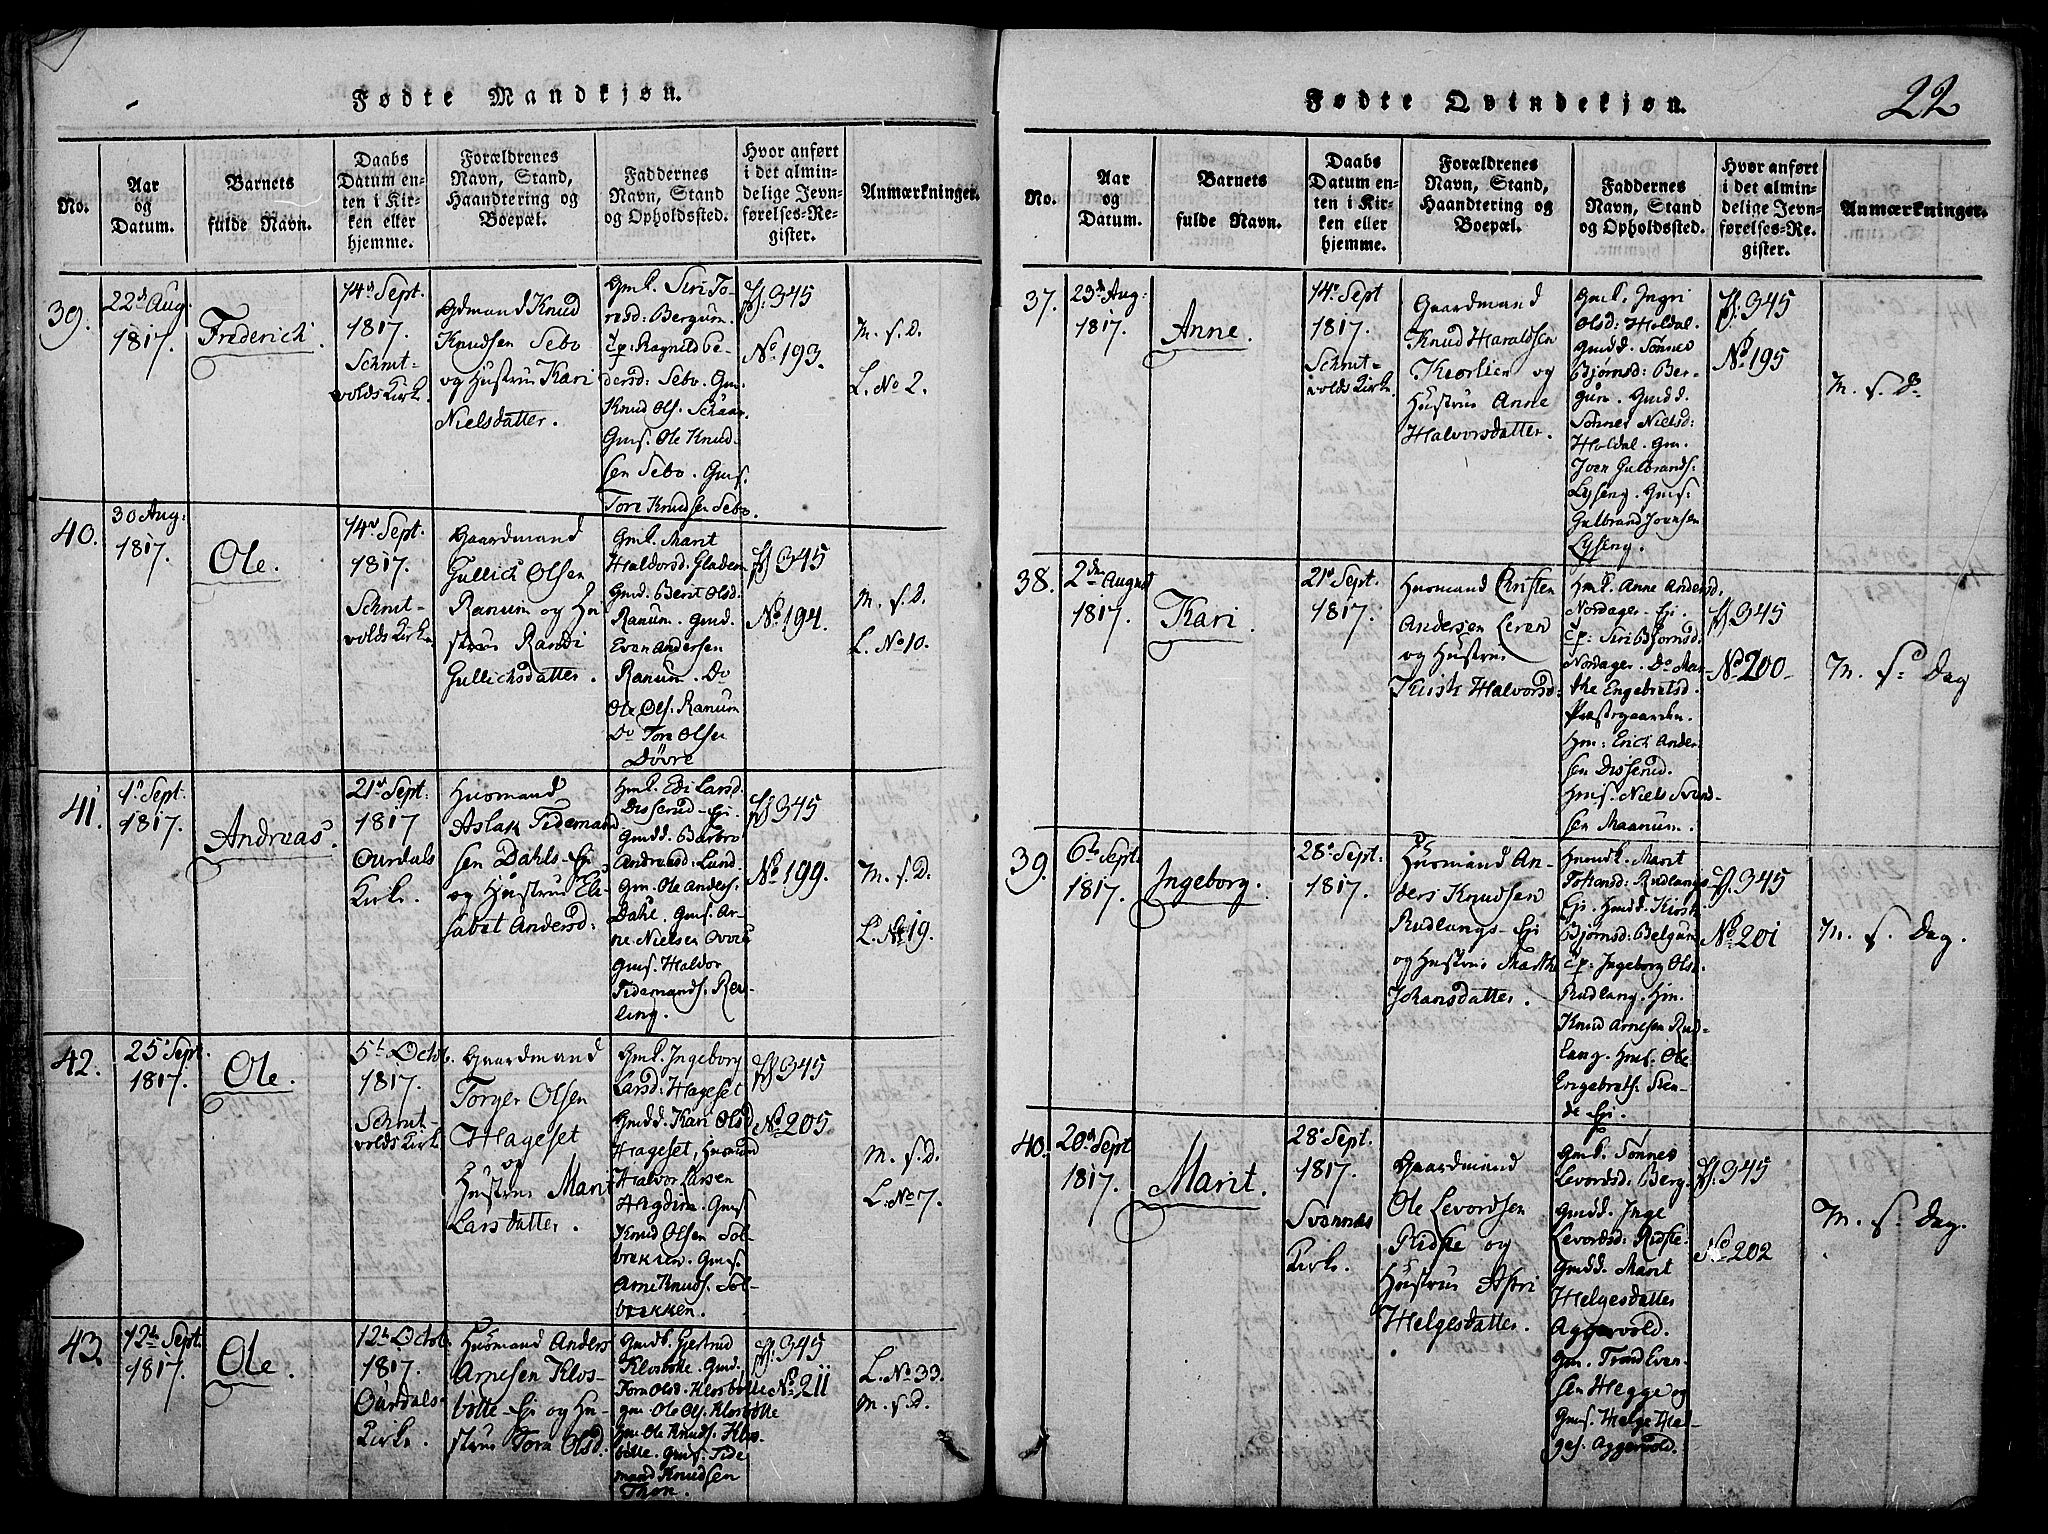 Fødte Mandkjøn.
No.
Aar
og
Datum.
Barnets
fulde Navn.
Daabs
Datum en-
ten i Kir-
ken eller
hjemme.
Forældrenes
Navn, Stand,
Haandtering og
Boepæl.
Faddernes
Navn, Stand
og Opholdssted.
Hvor anført
i det almin-
delige Jevn-
førelses-Re-
gister.
Anmærkninger.
39.
22d Aug:
1817.
Frederich
14d Sept.
1817.
Schrut-
volds Kirk.
Gdmand Knud
Knudsen Sebo
og Hustrue Kari
Nielsdatter.
Gmk. Siri To-
resd: Bergum.
Ip: Ragnild Pe-
dersd: Sebo. Gm.
Knud Ols. Schaar
Gms. Ole Knud-
sen Sebo. Gms.
Tore Knudsen Sebo.
P. 345
No 193.
M. s. D.
L. No 2.
40.
30 Aug:
1817.
Ole.
14d Sept.
1817.
Schrut-
volds Kirk
Gaardmand
Gullich Olsen
Ranum og Hu
strue Randi
Gullichsdatter.
Gmk. Marit
Haldorsd. Gladem
Gmd. Berit Olsd.
Ranum. Gmd.
Even Andersen
Ranum. Do
Ole Ols: Ranum
Do Tore Olsen
Dövre
P 345
No 194.
M. s. D.
L. No 10.
41.
1d Sept.
1817.
Andreas.
21d Sept.
1817
Ourdals
Kirke.
Husmand
Aslak Tidemand
sen Dahls-Ej
og Hustrue Ele
sabet Andersd:
Hmk. Edi Larsd.
Disserud-Ej
Gmdd. Barbro
Andreasd: Lund
Gm. Ole Anders.
Dahl. Gms. Ar-
ne Nielsen
Gms. Haldor
Tidemands. Rev-
ling.
P 345
No 199.
M. s. D.
L. No 19.
42.
25d Sept.
1817.
Ole.
5th Octob.
1817.
Schrut-
volds Kirk
Gaardmand
Torger Olsen
Hageset
og
Hustrue Marit
Larsdatter.
Gmk. Ingeborg
Larsd: Hageset
Gmdd. Kari Olsd
Hageset, Husmand
Halvor Larsen
Gms
Knud Olsen Sol-
brækken. Gms.
Arne Knuds. Sol-
brækken.
P 345
No 205
M. s. D.
L. No 7.
43.
12th Sept.
1817.
Ole.
12th Octob.
1817.
Ourdals-
Kirke.
Husmand Anders
Arnesen Klos-
bötte-Ej og Hu-
strue Torn Olsd.
Gmdk. Gertrud
Klosbötte. Gmd.
Torn Olsd. Klosbötte
gm Ole Ols. Klosbötte
Gm Ole Knuds. Klos-
bötte. Gms. Tide
mand Knudsen
Thon.
P. 345
No. 211
L. No 33.
M. s. D.
Fødte Qvindekjøn.
22
No.
Aar
og
Datum.
Barnets
fulde Navn.
Daabs
Datum en-
ten i Kir-
ken eller
hjemme.
Forældrenes
Navn, Stand,
Haandtering og
Boepæl.
Faddernes
Navn, Stand
og Opholdssted.
Hvor anført
i det almin-
delige Jevn-
førelses-Re-
gister.
Anmærkninger.
37.
23d Aug:
1817.
Anne.
14d Sept
1817.
Schrut-
volds Kirk.
Gaardmand
Knud Haraldsen
og
Hustrue Anne
Halvorsdatter.
Gmk. Ingri
Olsd: Holdal.
Gmdd. Sönnes
Björnsd: Ber-
gum. Gmdd.
Sönnes Nielsd:
Holdal. Gm.
Iven Gulbrands:
Lyseng. Gms:
Gulbrand Jvensen
Lyseng.
P. 345
No 195
M. s. D.
38.
2den August
1817.
Kari.
21d Sept.
1817.
Husmand Cristen
Andersen Leren
og Hustrue
Kirsti Halvorsd:
Hmk. Anne Andersd.
Nordager-Ej.
Ip: Siri Björnsd:
Nordager. Do Mar-
the Engebretsd.
Præstegaarden.
Hm: Erich Ander-
sen Disserud.
Hms. Niels Svend-
sen Maanum.
P. 345
No 200
M. s. Dag
39.
6th Sept.
1817.
Ingeborg.
28d Sept.
1817.
Husmand An-
ders Knudsen
Rudlangs-Ej
og Hustrue Marthe
Johansdatter.
Hmdk. Marit
Johansd: Rudlangs
Ej. Hmdd. Kirsti
Björnsd: Belgum
Ip: Ingeborg Olsd
Rudlang. Hm.
Knud Arnesen Rud-
lang. Hms. Ole
Engebrets.
P. 345
No 201
M. s. Dag.
40.
20d Sept
1817.
Marit.
28d Sept.
1817.
Svennes
Kirk.
Gaardmand
Ole Levordsen
Ridste og
Hustrue
Helgesdatter.
Gmk. Sönnes
Levordsd: Berg.
Gmdd. Inge
Levordsd: Ridste-
Gmdd. Marit
Helgesdatter
Aggervold.
Gm. Trond Even-
sen Hegge og
Gms. Helge Hel-
ges. Aggervold.
P. 345
No 202
M. s. Dag.